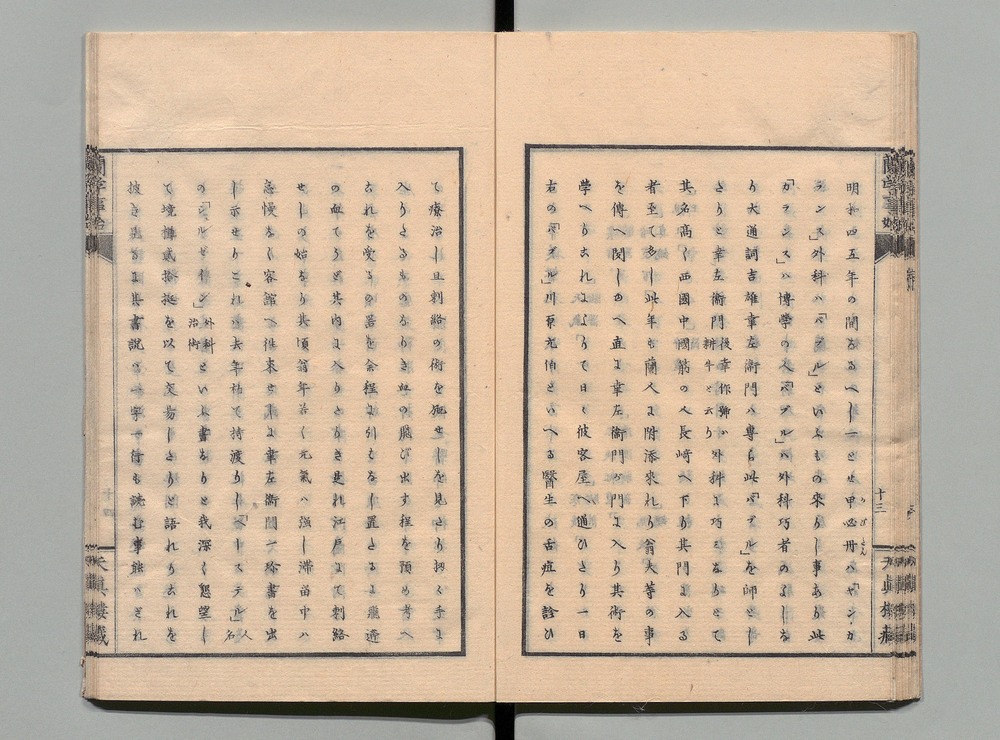 明和四五年の間なるへし一とせ甲必丹ハ「ヤンカ
ランス」外科ハ「バブル」といふもの来りし事あり此
「カランス」ハ博学の人「バブル」ハ外科巧者のよしな
り大通詞吉雄幸左衛門ハ専ら此「バブル」を師とし
たりと幸左衛門後幸作号ハ耕牛と云り外科に巧ミなりとて
其名高く西國中國筋の人長崎へ下り其門に入る
者至て多し此年も蘭人に附添来れり翁夫等の事
を傳へ聞しゆへ直に幸左衛門か門に入り其術を
學へりこれによりて日々彼客屋へ通ひたり一日
右の「バブル」川原元伯といへる醫生の舌疽を診ひ
十三
蘭学事始
天真樓蔵
て療治し且刺絡の術を施せしを見たり扨々手に
入りたるものなりき血の飛び出す程を預め考へ
これを受るの器を余程に引はなし置たるに飛迸
の血てうと其内に入りたりき是れ江戸にて刺絡
せしの始なり其頃翁年若く元氣ハ強し滞留中ハ
怠慢なく客館へ往来せしに幸左衛門一珍書を出
し示せりこれハ去年始て持渡りし「ヘーステル」人名
の「シュルゼイン」外科治術といふ書なりと我深く懇望し
て境樽貳拾挺を以て交易したりと語れりこれを
披き見るに其書説の一字一行も読む事能ハされ
蘭学事始
天真樓蔵